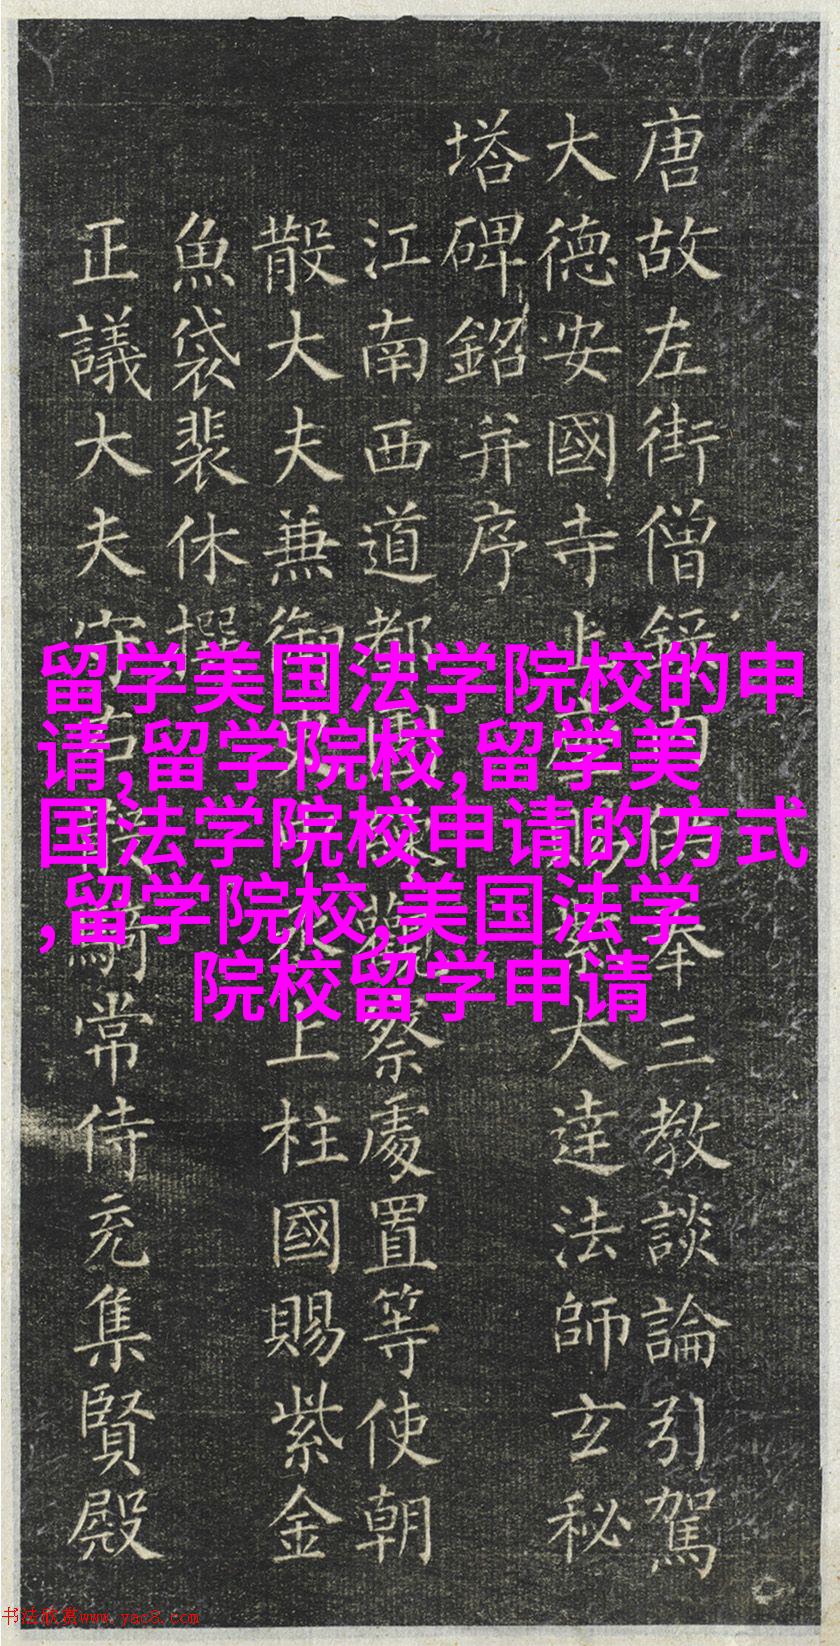 唐故左街僧錄內供奉三教談論引駕
大德安國寺上座賜紫大達法師玄秘
塔碑銘并序
江南西道都團練觀察處置等使朝
散大夫兼御史中丞上柱國賜紫金
魚袋裴休撰
正議大夫守右散騎常侍充集賢殿
留学美国法学院校的申
请,留学院校,留学美
国法学院校申请的方式
,留学院校,美国法学
院校留学申请
书法欣赏www.yac8.com